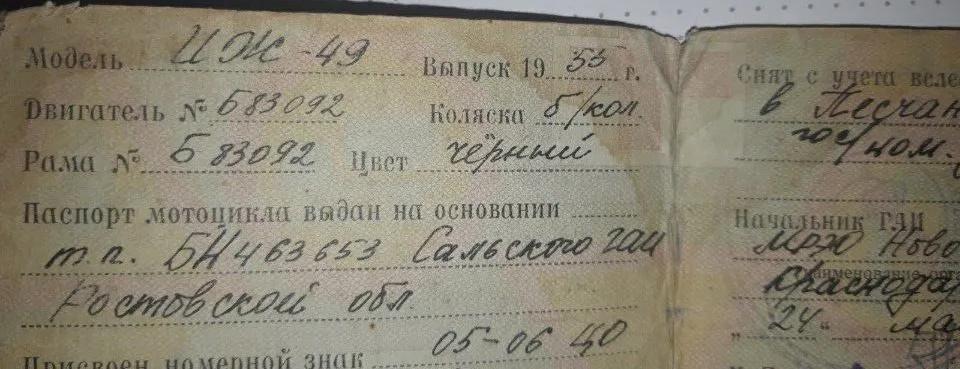 Модель ИЖ-49 Выпуск 1955 г.
Двигатель № Б83092 Коляска б/кол.
Рама № Б 83092 Цвет чёрный
Паспорт мотоцикла выдан на основании
т.п. БН 463653 Сальского ГАИ
Ростовской обл
Присвоен номерной знак 05-06 ЦО
Снят с учета вслe
в Песчан
гос/ном.
Начальник ГАИ
МРЭО Ново
Краснодар
„ 24 “ ма